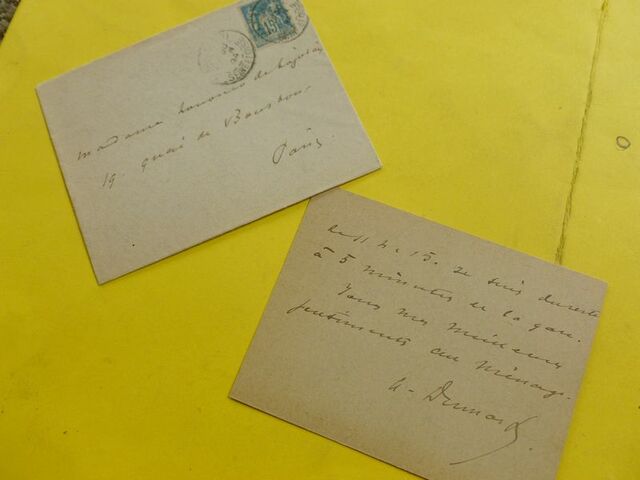 15
Madame
19. quai de Bourbon
Paris.
de 11 h. 15. Je suis du reste
à 5 minutes de la gare.
Tous mes meilleurs
sentiments au ménage.